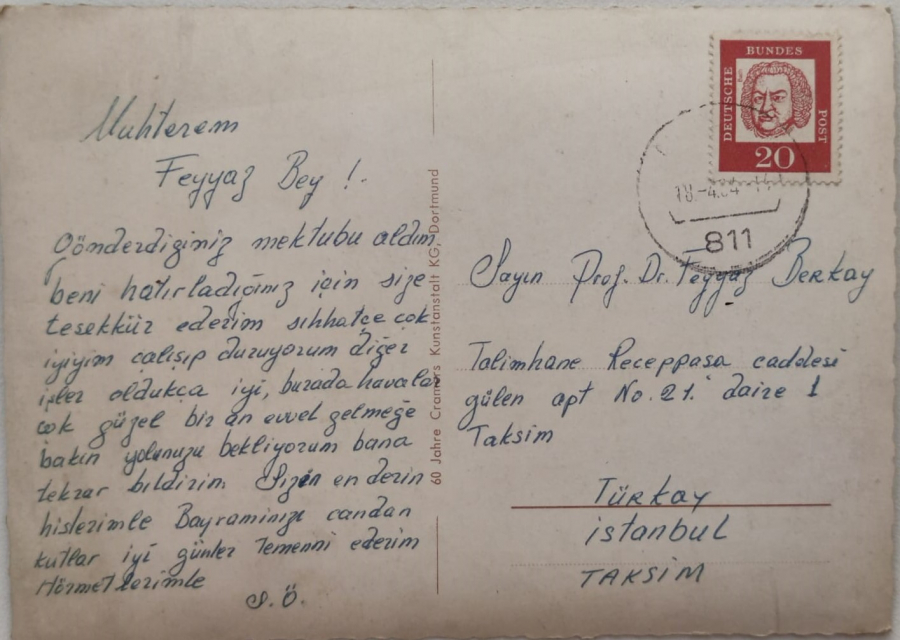 Muhterem
Feyyaz Bey !.
Gönderdiginiz mektubu aldım
beni hatırladığınız için size
teşekkür ederim sıhhatçe çok
iyiyim çalışıp duruyorum diğer
işler oldukça iyi, burada havalar
çok güzel bir an evvel gelmeğe
bakın yolunuzu bekliyorum bana
tekrar bildirin. Sizin en derin
hislerimle Bayramınızı candan
kutlar iyi günler temenni ederim
Hörmetlerimle
S.Ö.
60 Jahre Cramers Kunstanstalt KG, Dortmund
DEUTSCHE BUNDES POST
20
811
Sayın Prof. Dr. Feyyaz BERKAY
Talimhane Receppasa caddesi
gülen apt No. 21. daire 1
Taksim
TÜRKAY
istanbul
TAKSİM